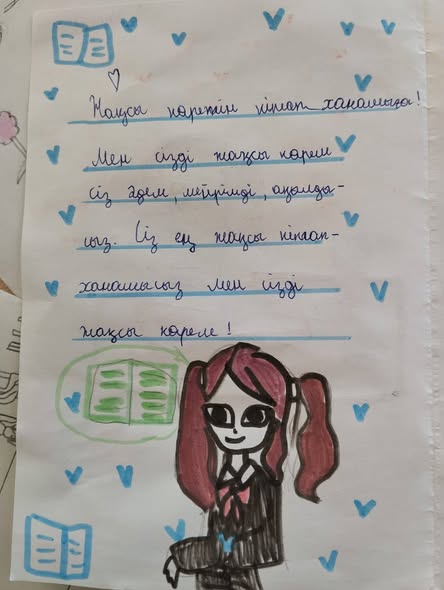 Жақсы көретін кітапханашыға!
Мен сізді жақсы көрем
сіз әдем, мейірімді, ақылды-
сыз. Сіз ең жақсы кітап-
ханашысыз мен сізді
жақсы көреме!